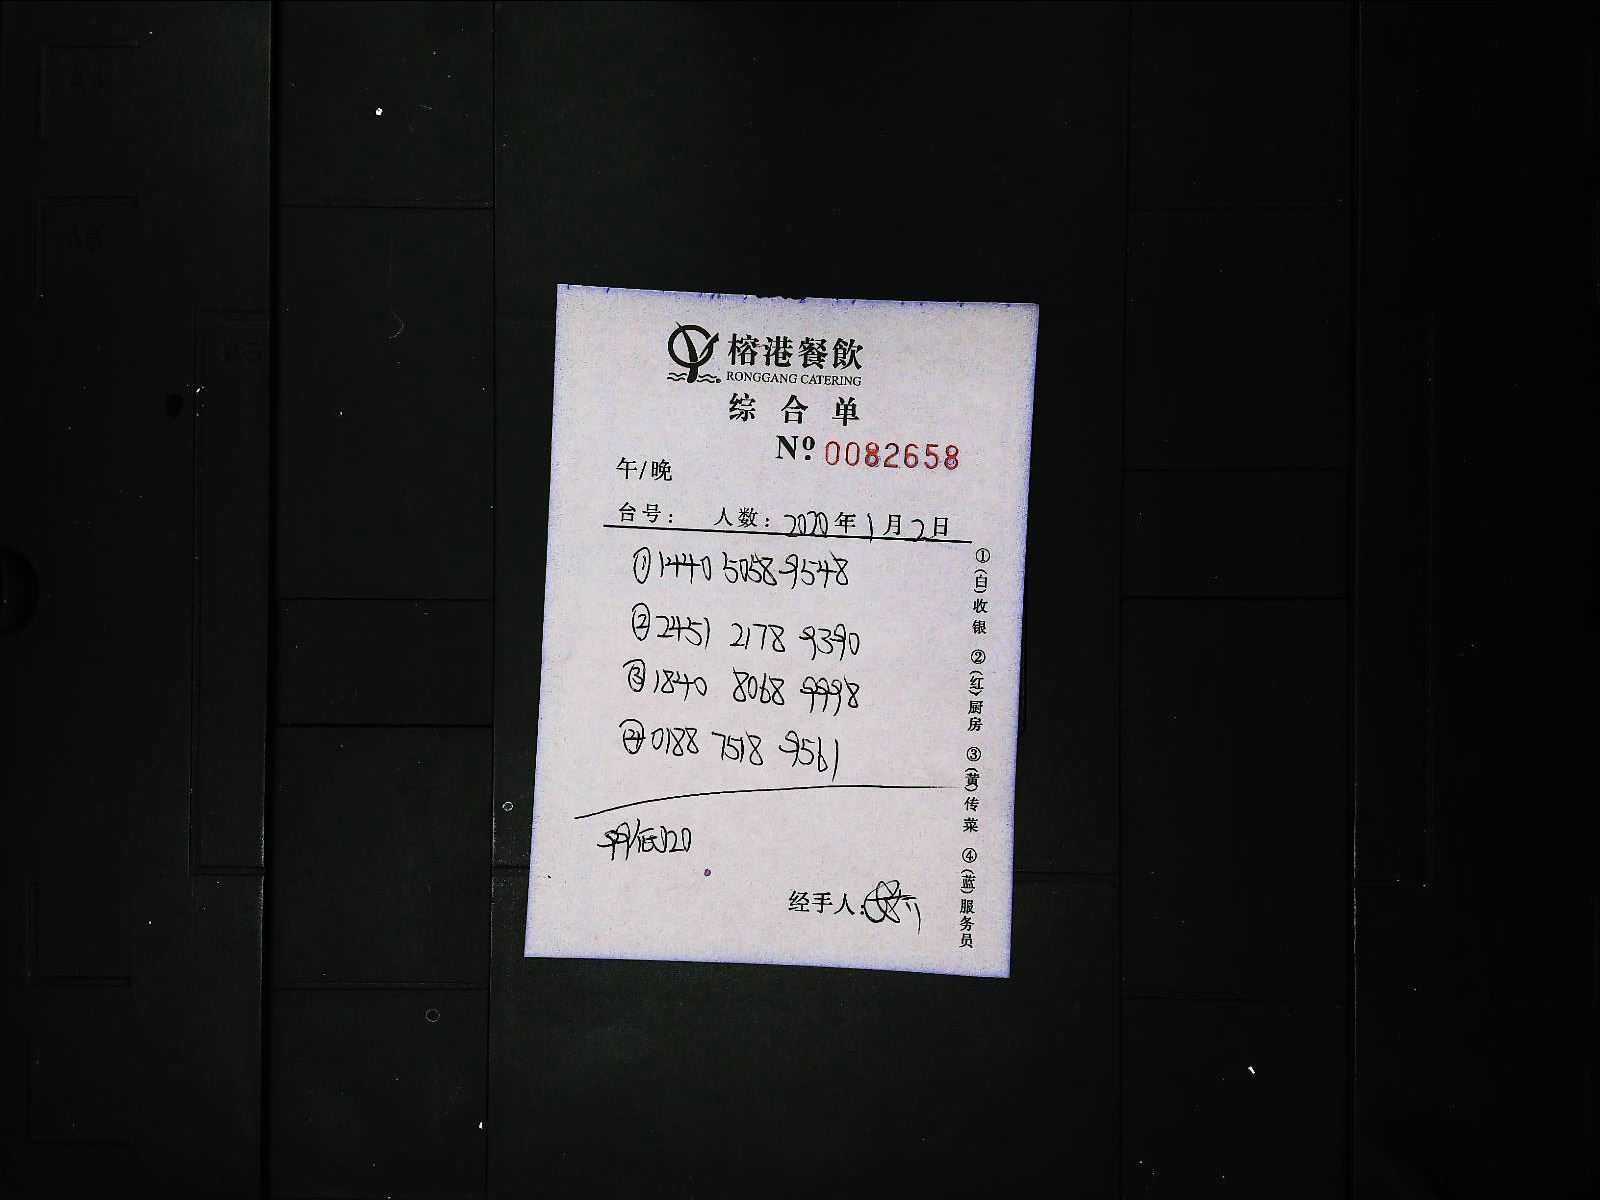 榕港餐飲
RONGGANG CATERING
综合单
Nº 0082658
午/晚
台号: 人数: 2020年1月2日
①1440 5058 9548
②2451 2178 9390
③1840 8068 9998
④0188 7518 9561
经手人:
①(白)收银 ②(红)厨房 ③(黄)传菜 ④(蓝)服务员